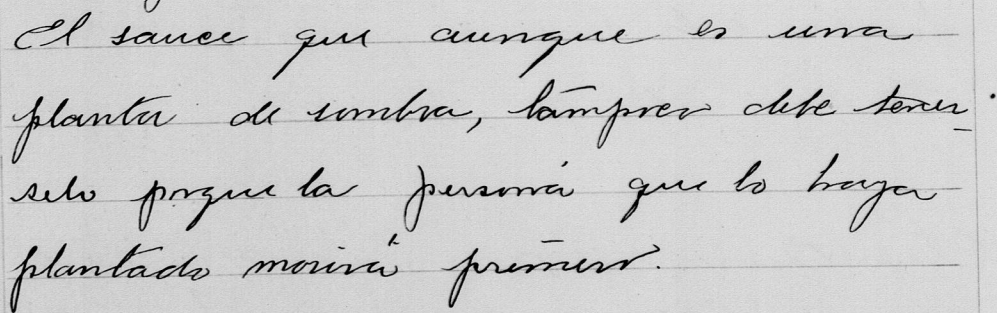 El sauce que aunque es una
planta de sombra, támpoco debe tener
selo porque la persona que lo haya
plantado morirá primero.